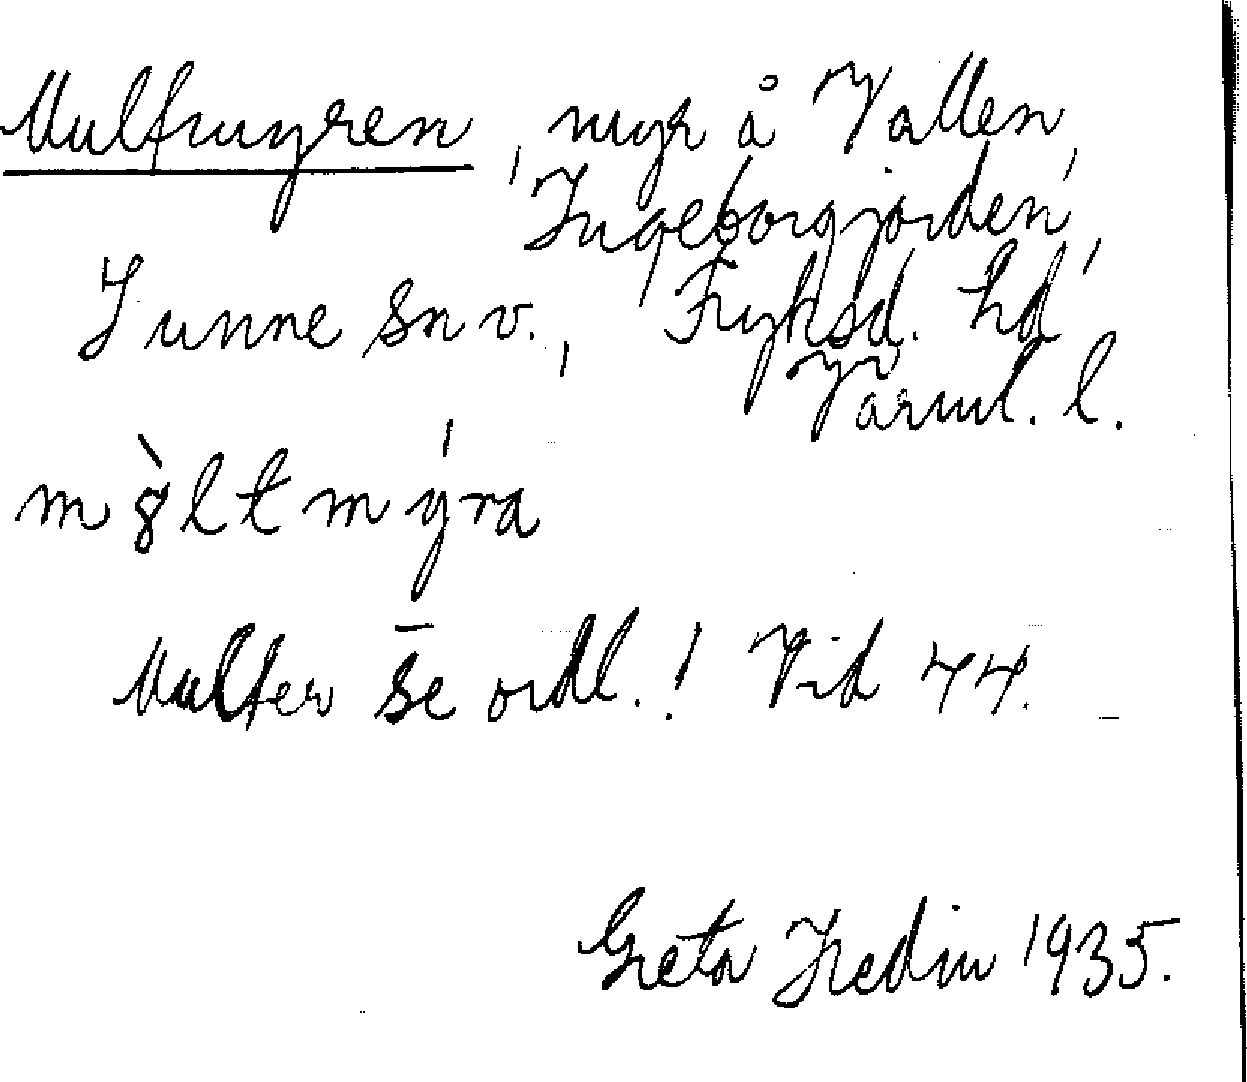 Multmyren, myr å Vallen,
Ingeborgjorden,
Sunne sn v., Fryksd. hd,
Värml. l.
m8̀ltmýra
Multer se ordl.! Vid 44.
Greta Hedin 1935.